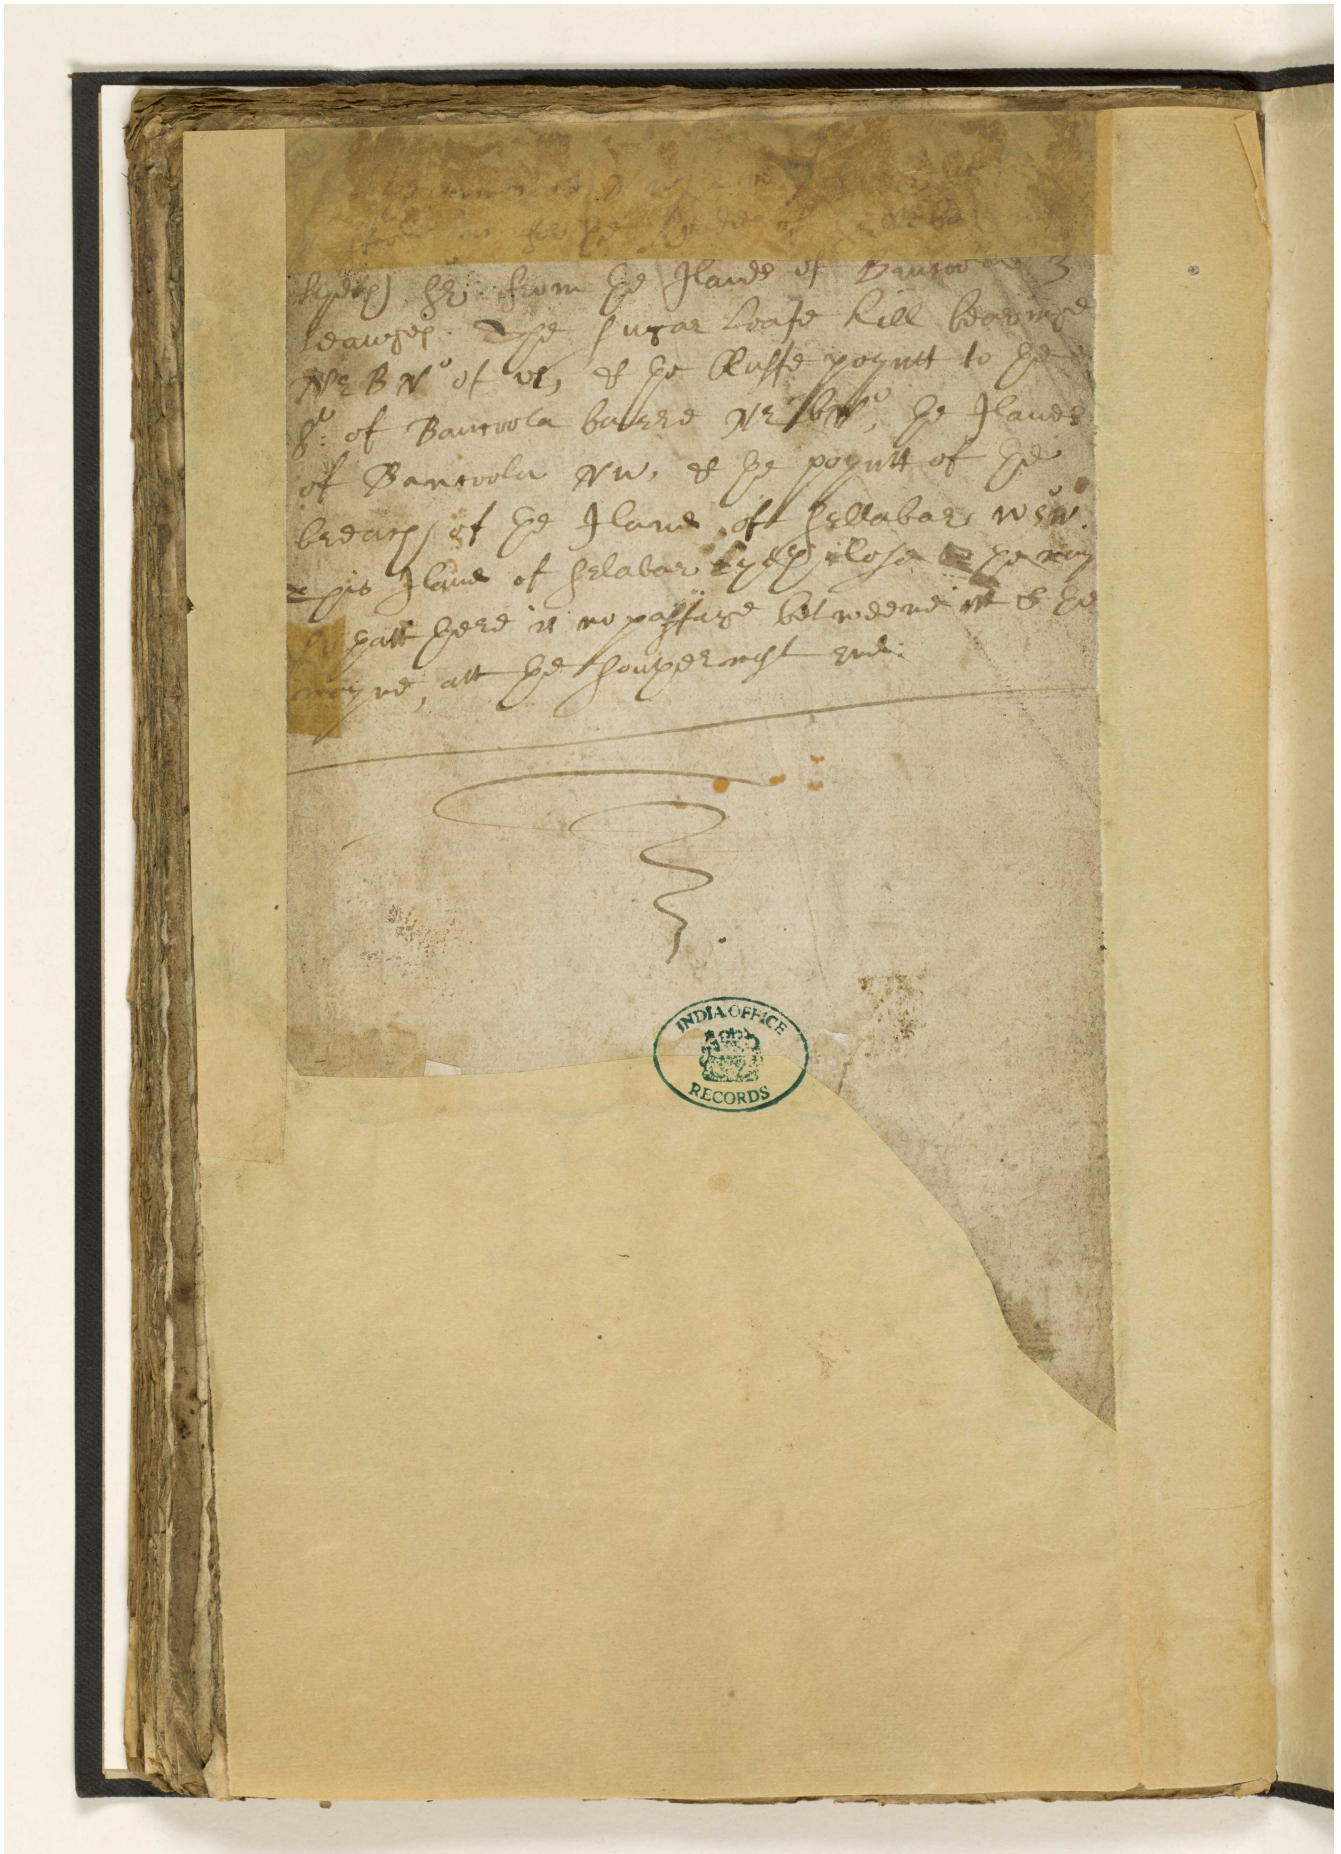 of Sellabar
lyeth SE from the Iland of Bancoola 3
leauges. The sugar Loafe hill bearinge
NE B No of vs, & the Bluffe poyntt to the
So: of Bancoola beare NE b No, the Ilands
of Bancoola NW, & the poyntt of the
breach of the Iland of Sellabar WSW.
This Iland of Selabar lyeth close
thatt there is no passage betweene itt & the
mayne, att the Southermost end.
INDIA OFFICE
RECORDS